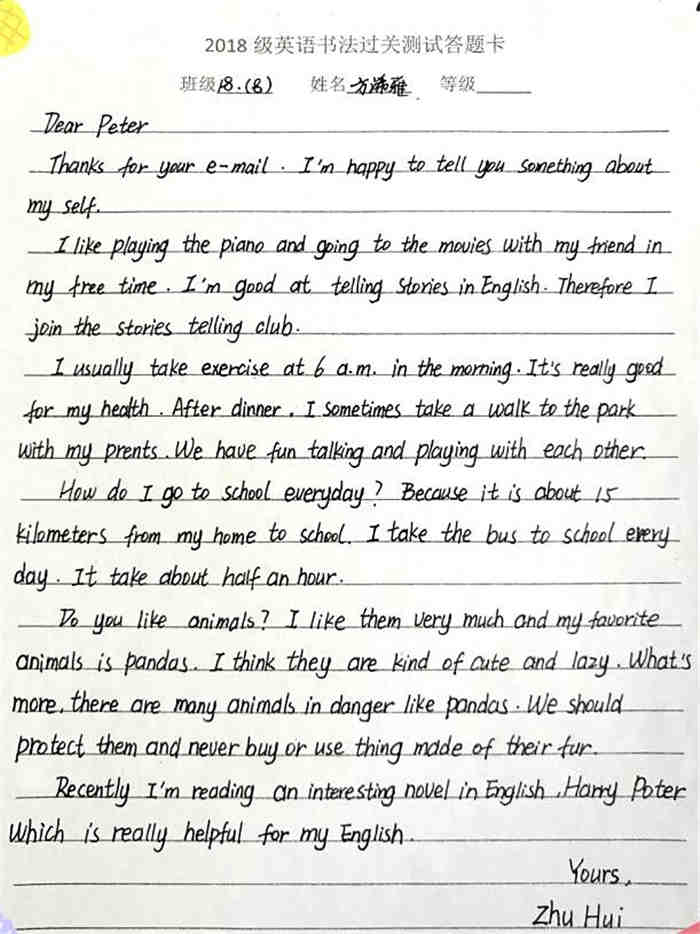 2018 级英语书法过关测试答题卡
班级18.(8) 姓名 方浠雅 等级
Dear Peter
Thanks for your e-mail. I'm happy to tell you something about
my self.
I like playing the piano and going to the movies with my friend in
my free time. I'm good at telling stories in English. Therefore I
join the stories telling club.
I usually take exercise at 6 a.m. in the morning. It's really good
for my health. After dinner, I sometimes take a walk to the park
with my prents. We have fun talking and playing with each other.
How do I go to school everyday? Because it is about 15
kilometers from my home to school. I take the bus to school every
day. It take about half an hour.
Do you like animals? I like them very much and my favorite
animals is pandas. I think they are kind of cute and lazy. What's
more, there are many animals in danger like pandas. We should
protect them and never buy or use thing made of their fur.
Recently I'm reading an interesting novel in English, Harry Poter
which is really helpful for my English.
Yours,
Zhu Hui